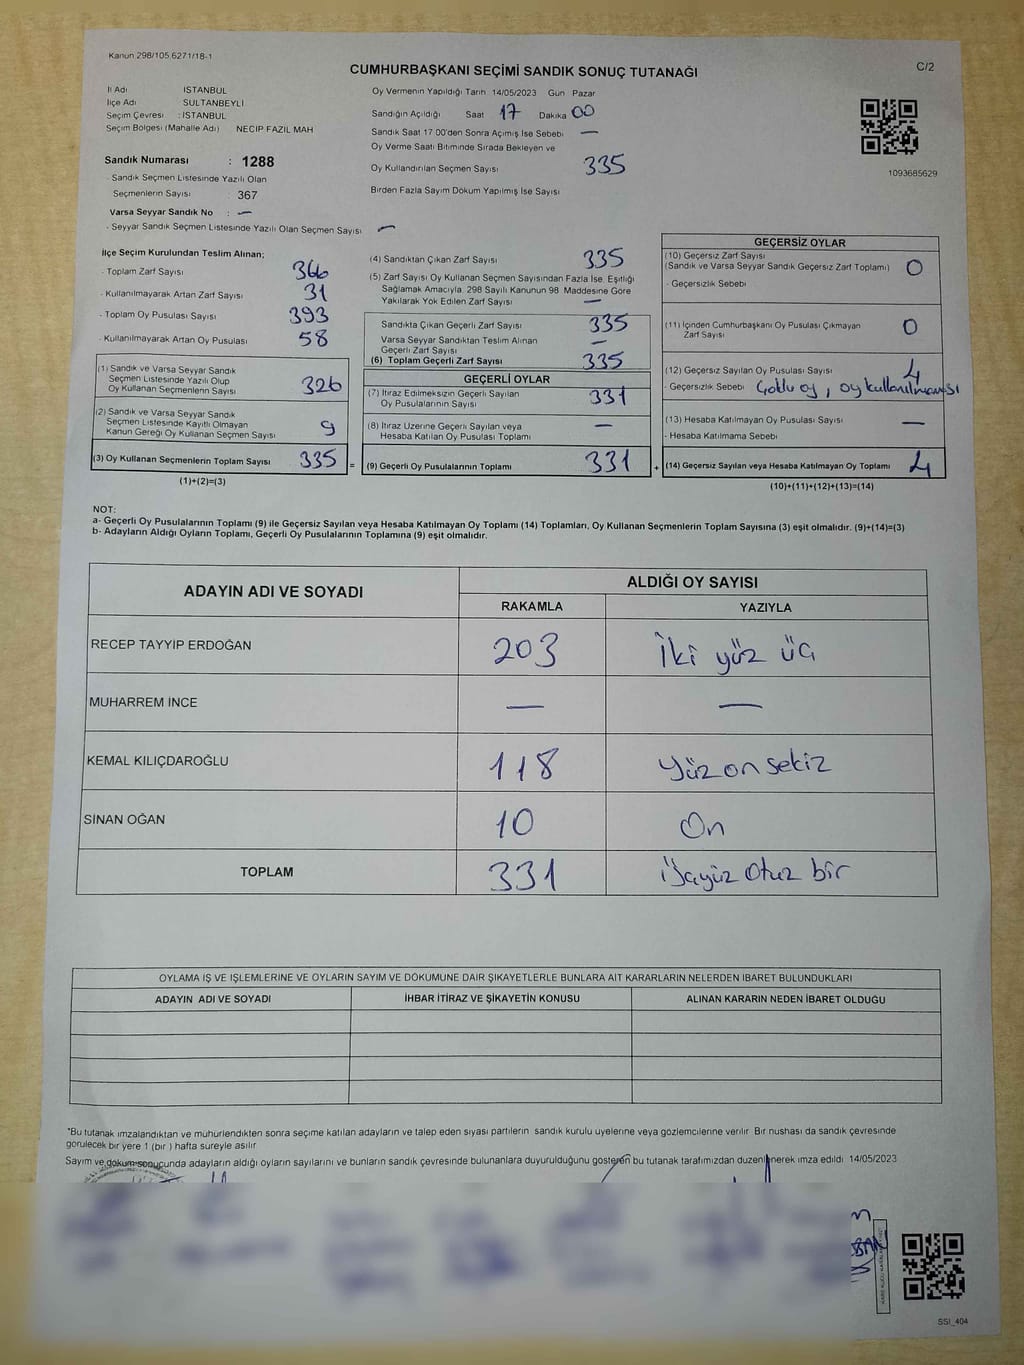 Kanun 298/105 6271/18-1
C/2
CUMHURBAŞKANI SEÇİMİ SANDIK SONUÇ TUTANAĞI
İl Adı İSTANBUL
İlçe Adı SULTANBEYLİ
Seçim Çevresi : İSTANBUL
Seçim Bölgesi (Mahalle Adı) NECİP FAZIL MAH
Sandık Numarası : 1288
- Sandık Seçmen Listesinde Yazılı Olan
Seçmenlerin Sayısı : 367
Varsa Seyyar Sandık No : —
- Seyyar Sandık Seçmen Listesinde Yazılı Olan Seçmen Sayısı —
Oy Vermenin Yapıldığı Tarih 14/05/2023 Gün Pazar
Sandığın Açıldığı Saat 17 Dakika 00
Sandık Saat 17 00'den Sonra Açımış İse Sebebi —
Oy Verme Saati Bitiminde Sırada Bekleyen ve
Oy Kullandırılan Seçmen Sayısı 335
Birden Fazla Sayım Döküm Yapılmış İse Sayısı
1093685629
İlçe Seçim Kurulundan Teslim Alınan;
- Toplam Zarf Sayısı 366
- Kullanılmayarak Artan Zarf Sayısı 31
- Toplam Oy Pusulası Sayısı 393
- Kullanılmayarak Artan Oy Pusulası 58
(1) Sandık ve Varsa Seyyar Sandık
Seçmen Listesinde Yazılı Olup
Oy Kullanan Seçmenlerin Sayısı 326
(2) Sandık ve Varsa Seyyar Sandık
Seçmen Listesinde Kayıtlı Olmayan
Kanun Gereği Oy Kullanan Seçmen Sayısı 9
(3) Oy Kullanan Seçmenlerin Toplam Sayısı 335 =
(1)+(2)=(3)
(4) Sandıktan Çıkan Zarf Sayısı 335
(5) Zarf Sayısı Oy Kullanan Seçmen Sayısından Fazla İse, Eşitliği
Sağlamak Amacıyla, 298 Sayılı Kanunun 98 Maddesine Göre
Yakılarak Yok Edilen Zarf Sayısı —
Sandıkta Çıkan Geçerli Zarf Sayısı 335
Varsa Seyyar Sandıktan Teslim Alınan
Geçerli Zarf Sayısı —
(6) Toplam Geçerli Zarf Sayısı 335
GEÇERLİ OYLAR
(7) İtiraz Edilmeksizin Geçerli Sayılan
Oy Pusulalarının Sayısı 331
(8) İtiraz Üzerine Geçerli Sayılan veya
Hesaba Katılan Oy Pusulası Toplamı —
(9) Geçerli Oy Pusulalarının Toplamı 331 +
GEÇERSİZ OYLAR
(10) Geçersiz Zarf Sayısı
(Sandık ve Varsa Seyyar Sandık Geçersiz Zarf Toplamı) 0
- Geçersizlik Sebebi
(11) İçinden Cumhurbaşkanı Oy Pusulası Çıkmayan
Zarf Sayısı 0
(12) Geçersiz Sayılan Oy Pusulası Sayısı 4
- Geçersizlik Sebebi Çoklu oy, oy kullanılmaması
(13) Hesaba Katılmayan Oy Pusulası Sayısı —
- Hesaba Katılmama Sebebi
(14) Geçersiz Sayılan veya Hesaba Katılmayan Oy Toplamı 4
(10)+(11)+(12)+(13)=(14)
NOT:
a- Geçerli Oy Pusulalarının Toplamı (9) ile Geçersiz Sayılan veya Hesaba Katılmayan Oy Toplamı (14) Toplamları, Oy Kullanan Seçmenlerin Toplam Sayısına (3) eşit olmalıdır. (9)+(14)=(3)
b- Adayların Aldığı Oyların Toplamı, Geçerli Oy Pusulalarının Toplamına (9) eşit olmalıdır.
ADAYIN ADI VE SOYADI
ALDIĞI OY SAYISI
RAKAMLA YAZIYLA
RECEP TAYYİP ERDOĞAN 203 İki yüz üç
MUHARREM İNCE — —
KEMAL KILIÇDAROĞLU 118 Yüz on sekiz
SİNAN OĞAN 10 On
TOPLAM 331 üçyüz otuz bir
OYLAMA İŞ VE İŞLEMLERİNE VE OYLARIN SAYIM VE DÖKÜMÜNE DAİR ŞİKAYETLERLE BUNLARA AİT KARARLARIN NELERDEN İBARET BULUNDUKLARI
ADAYIN ADI VE SOYADI İHBAR İTİRAZ VE ŞİKAYETİN KONUSU ALINAN KARARIN NEDEN İBARET OLDUĞU
"Bu tutanak imzalandıktan ve mühürlendikten sonra seçime katılan adayların ve talep eden siyasi partilerin sandık kurulu üyelerine veya gözlemcilerine verilir Bir nüshası da sandık çevresinde
görülecek bir yere 1 (bir ) hafta süreyle asılır
Sayım ve döküm sonucunda adayların aldığı oyların sayılarını ve bunların sandık çevresinde bulunanlara duyurulduğunu gösteren bu tutanak tarafımızdan düzenlenerek imza edildi 14/05/2023
SSI_404